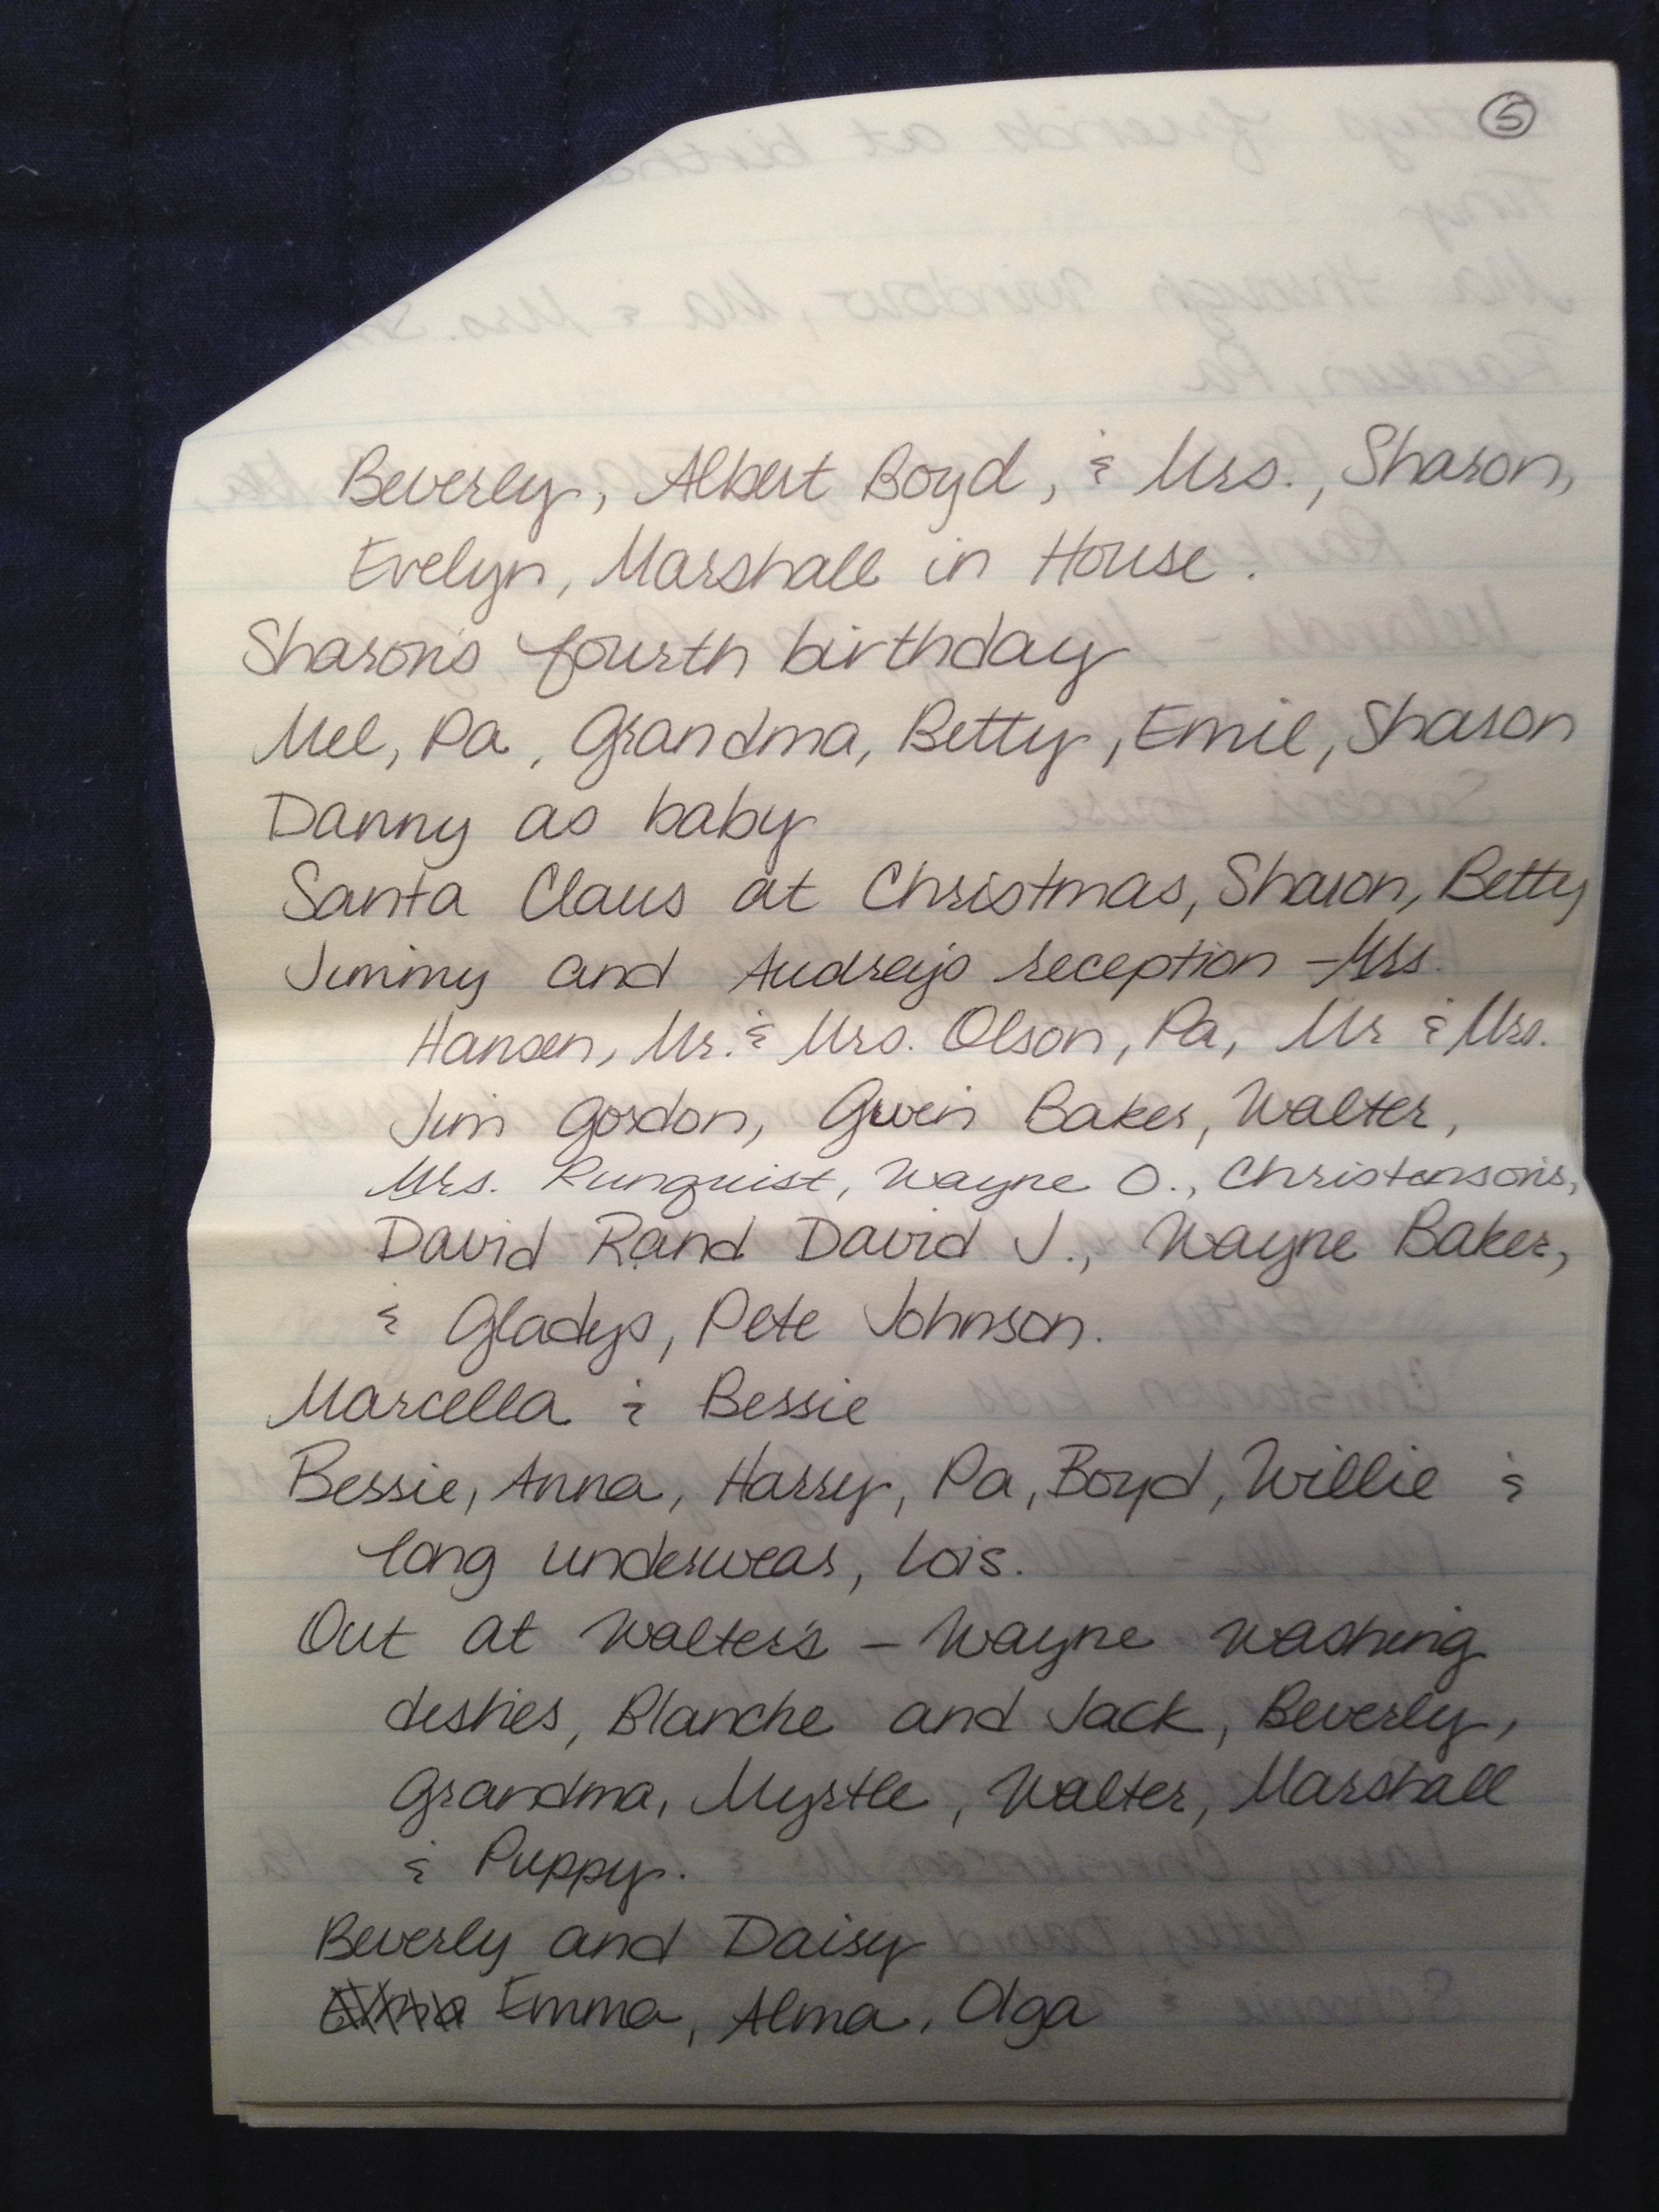 5
Beverly, Albert Boyd, & Mrs., Sharon,
Evelyn, Marshall in House.
Sharon's fourth birthday
Mel, Pa, Grandma, Betty, Emil, Sharon
Danny as baby
Santa Claus at Christmas, Sharon, Betty
Jimmy and Audrey's reception - Mrs.
Hansen, Mr. & Mrs. Olson, Pa, Mr & Mrs.
Jim Gordon, Gwen Baker, Walter,
Mrs. Runquist, Wayne O., Christensons,
David R and David J., Wayne Baker,
& Gladys, Pete Johnson.
Marcella & Bessie
Bessie, Anna, Harry, Pa, Boyd, Willie &
long underwear, Lois.
Out at Walter's - Wayne washing
dishes, Blanche and Jack, Beverly,
Grandma, Myrtle, Walter, Marshall
& Puppy.
Beverly and Daisy
Emma, Alma, Olga